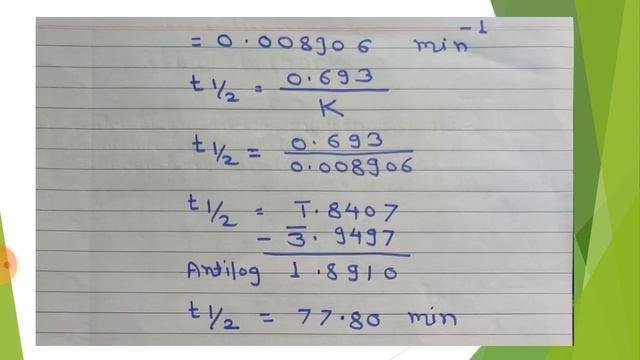 = 0.008906 min⁻¹
t 1/2 = 0.693 / K
t 1/2 = 0.693 / 0.008906
t 1/2 = T̅.8407
- 3̅.9497
Antilog 1.8910
t 1/2 = 77.80 min